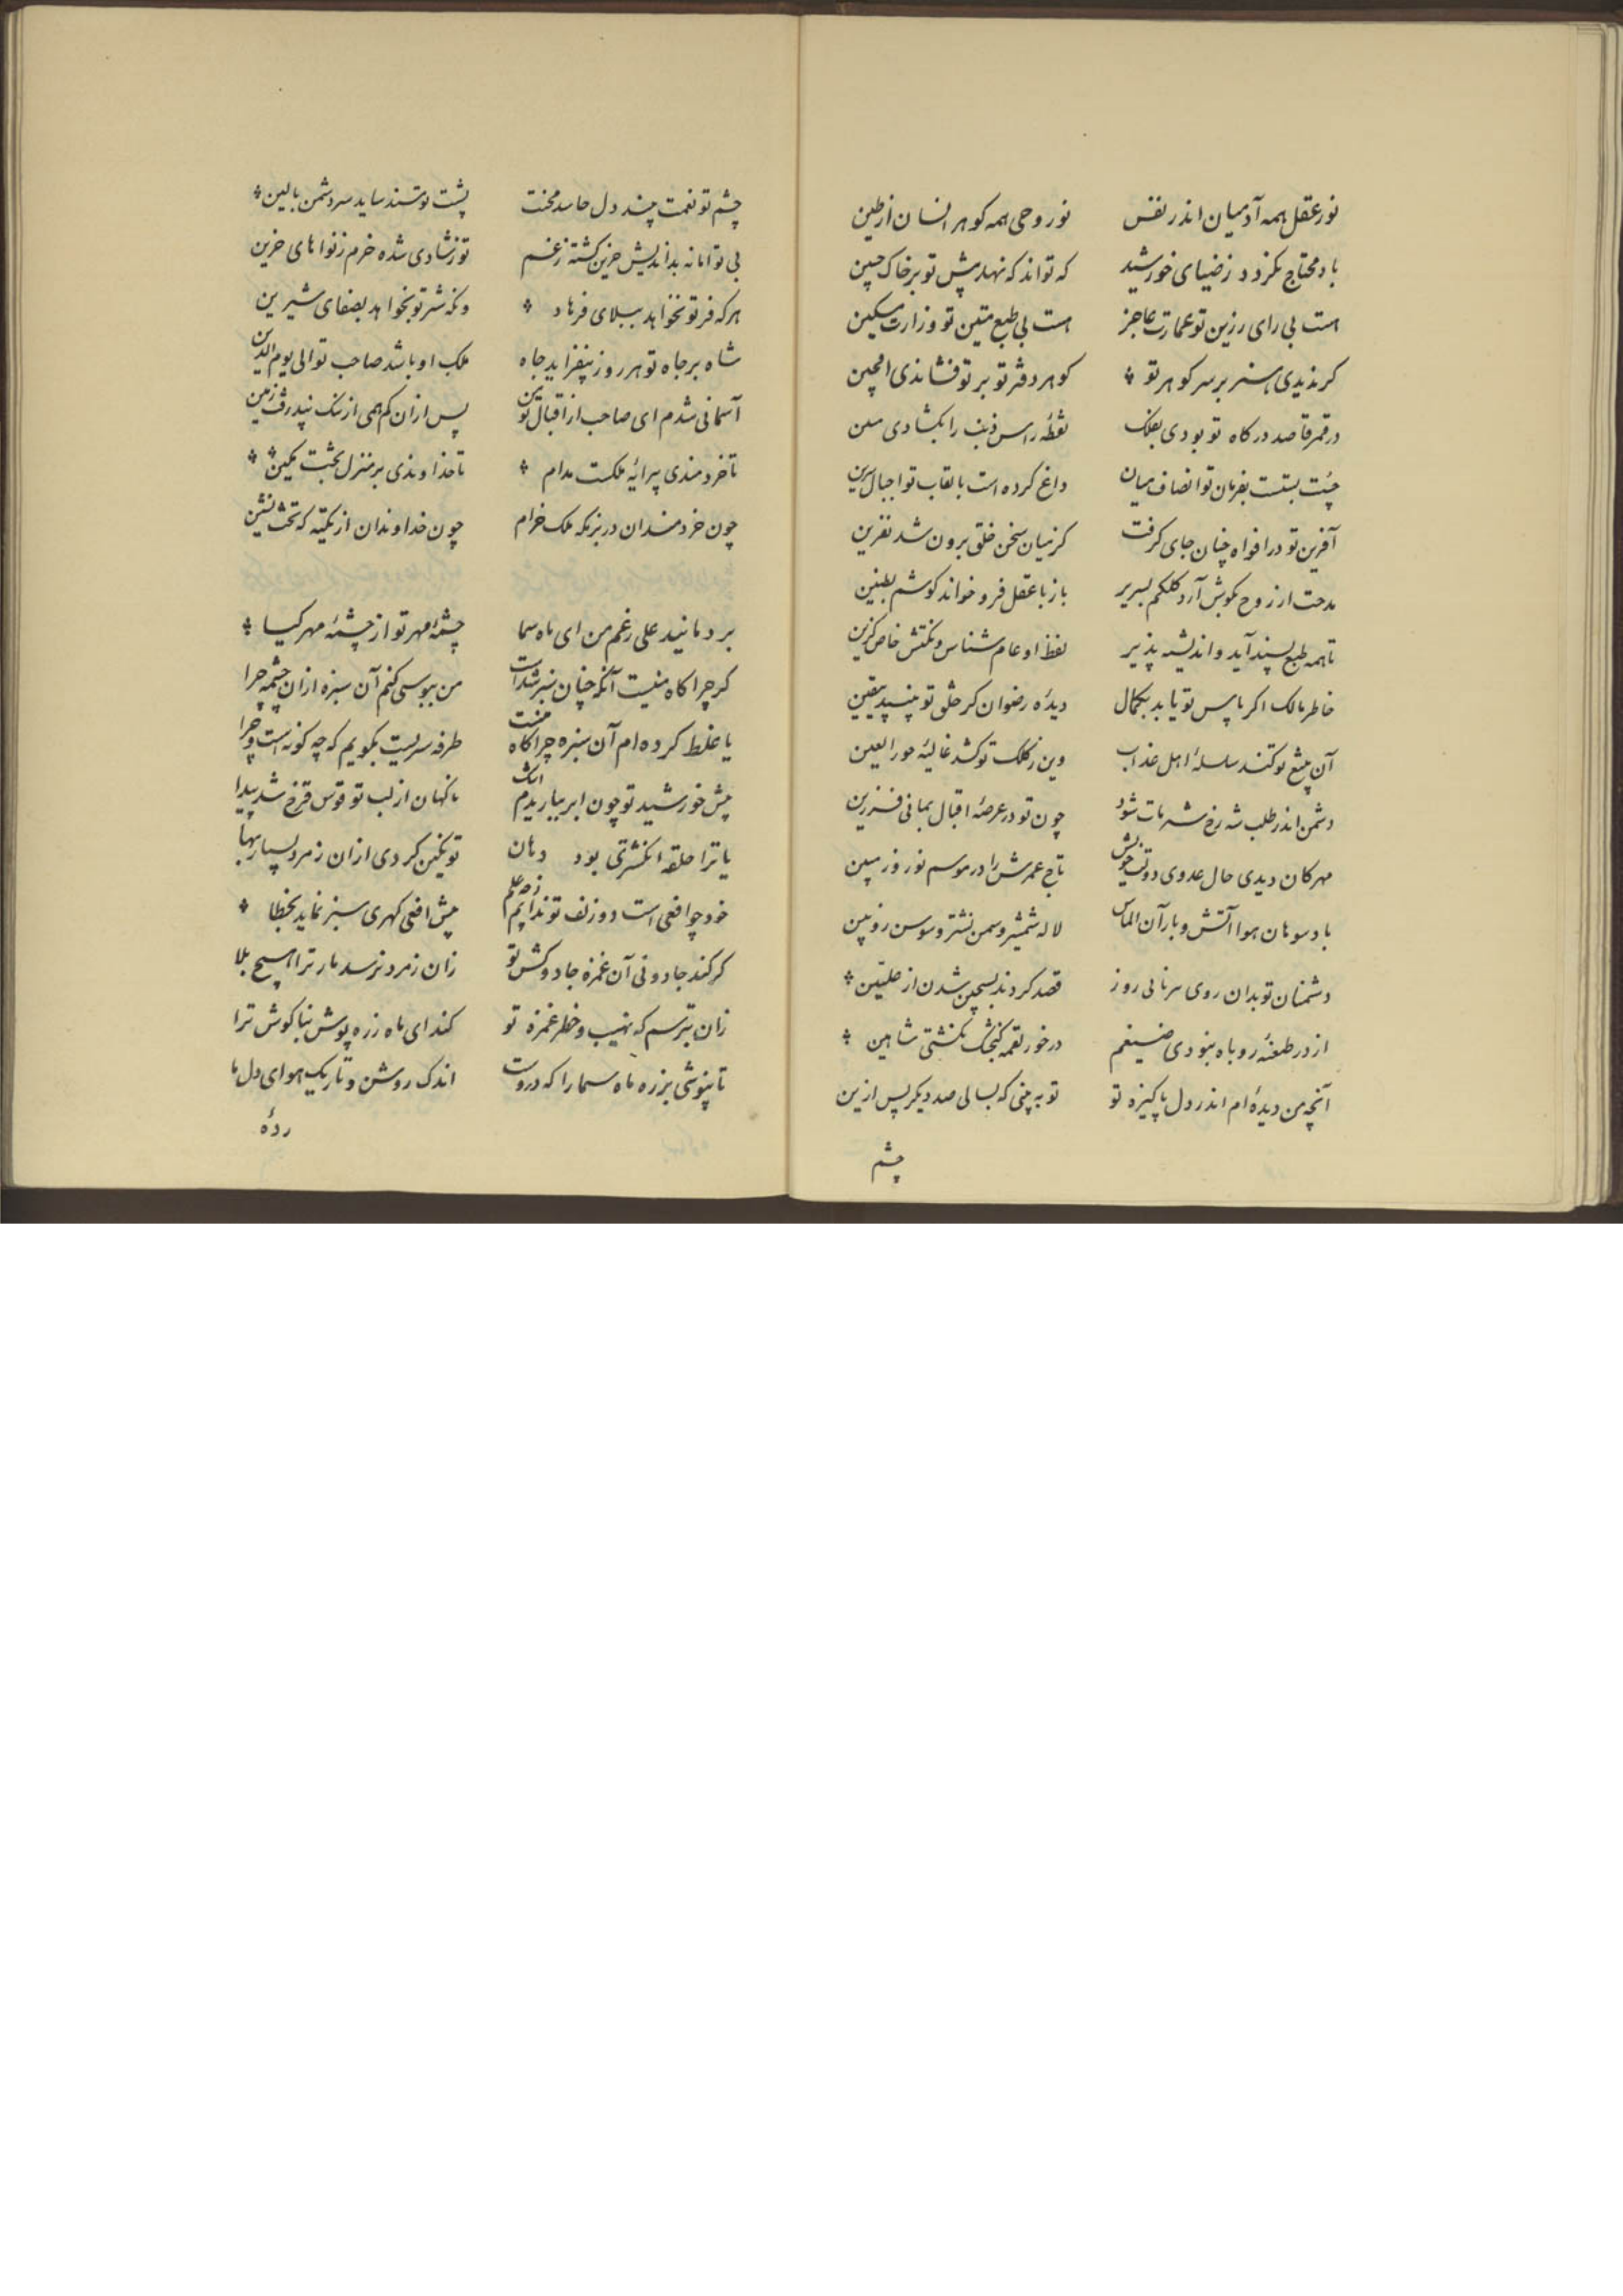 نور عقل همه آدمیان اندر نفس نور وحی همه کوهر انسان از طین
باد محتاج نکردد ز ضیای خورشید که تواند که نهد پیش تو بر خاک جبین
است بی رای رزین تو عمارت عاجز است بی طبع متین تو وزارت مسکین
کر ندیدی هنر بر سر کوهر تو کوهر دفتر تو بر تو فشاندی
در قمر قاصد درکاه تو بودی بفلک نقطه راس ذنب را بکشادی
چست بستست بفرمان تو انصاف میان داغ کرده است بالقاب تو اجبال سرین
آفرین تو در افواه چنان جای کرفت کز میان سخن خلق برون شد نفرین
مدحت از روح بکوش آرد کلکم بسریر باز با عقل فرو خواند کوشم بطنین
تا همه طبع پسند آید و اندیشه پذیر لفظ او عام شناس و نکتش خاص کزین
خاطر مالک اکر باس تو یابد بکمال دیده رضوان کر خلق تو بیند بیقین
آن پیش تو کند سلسله اهل عذاب وین ز کلک تو کشد غالیه حور العین
دشمن اندر طلب شه رخ شه مات شود چون تو در عرصه اقبال بمانی فرزین
مهرکان دیدی حال عدوی دولت خویش تاج عمرش را در موسم نوروز ببین
باد سوهان هوا آتش و باران الماس لاله شمشیر و سمن نشتر و سوسن زوبین
دشمنان تو بدان روی سر نا لی روز قصد کردند بسجین شدن از علیین
از در طعنه روباه نبودی ضیغم در خور لقمه کنجشک نکشتی شاهین
آنچه من دیده ام اندر دل پاکیزه تو تو به بینی که بسالی صد دیکر پس ازین
چشم
چشم تو نعمت چند دل حاسد محنت پشت تو مسند ساید سر دشمن بالین
بی تو امانه بداندیش حزین کشته ز غم تو ز شادی شده خرم ز نواهای حزین
هر که فر تو نخواهد ببلای فرهاد وانکه شر تو نخواهد بصفای شیرین
شاه بر جاه تو هر روز بیفزاید جاه ملک او باشد صاحب تو الی یوم الدین
آسمانی شدم ای صاحب از اقبال تو پس ازان کم همی از ننک نپذرفت زمین
تا خردمندی پیرایه ملکست مدام تا خداوندی بر منزل بختت مکین
چون خردمندان در بزمکه ملک خرام چون خداوندان از تکیه که تخت نشین
بر دمانید علی رغم من ای ماه سما چشمه مهر تو از چشمه مهر کیا
کر چراکاه منیست آنکه چنان سبز شدست من ببوسی کنم آن سبزه ازان چشمه چرا
یا غلط کرده ام آن سبزه چراکاه منست طرفه سریست بکویم که چه کونه است و چرا
پیش خورشید تو چون ابر بباریدم اشک ناکهان از لب تو قوس قزح شد پیدا
یا ترا حلقه انکشتری بود دهان تو نکین کردی ازان زمرد بسیار بها
خود چو افعی است دو زلف تو ندانم پیش افعی کهری سبز نماید بخطا
کر کند جادوئی آن غمزه جادوکش تو زان زمرد نرسد مار ترا هیچ بلا
زان بترسم که نهیب و خطر غمزه تو کند ای ماه زره پوش بناکوش ترا
تا بپوشی بزره ماه سما را که دروست اندک روشن و تاریک هوای دل ما
رده